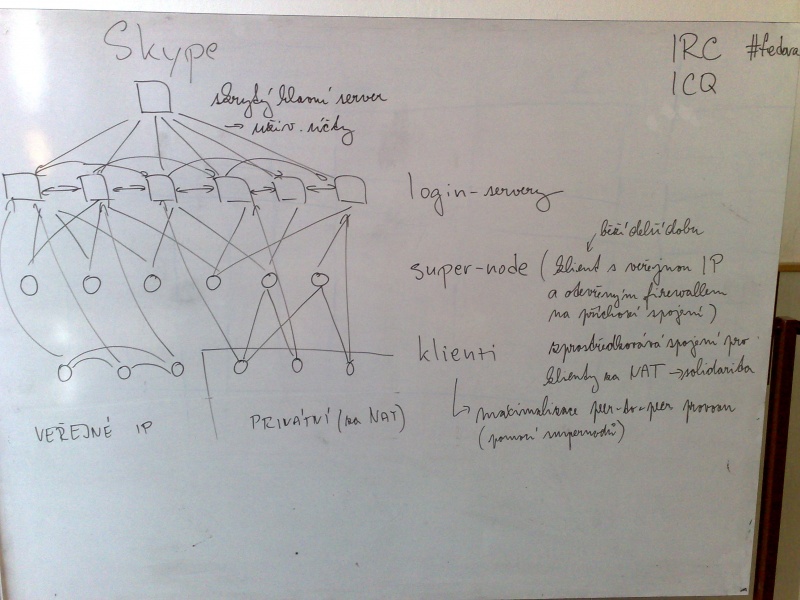 Skype
IRC #fedora
ICQ
skrytý hlavní server
→ uživ. účty
login-servery
běží delší dobu
super-node (klient s veřejnou IP
a otevřeným firewallem
na příchozí spojení)
klienti
zprostředkovává spojení pro
klienty za NAT → solidarita
maximalizace peer-to-peer provozu
(pomocí supernodů)
VEŘEJNÉ IP
PRIVÁTNÍ (za NAT)